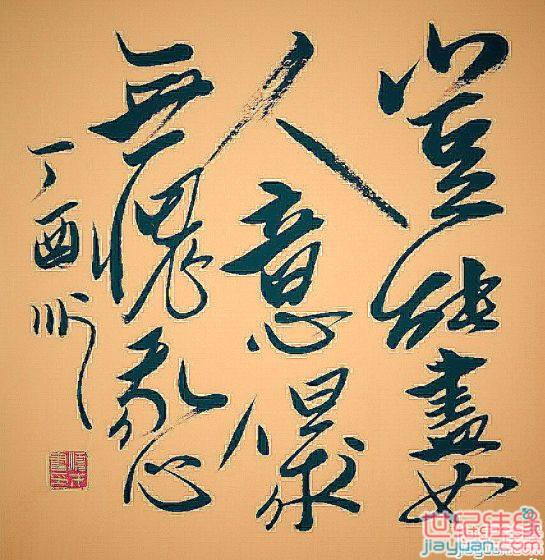 豈能盡如
人意但求
無愧我心
丁酉
世纪佳缘
jiayuan.com